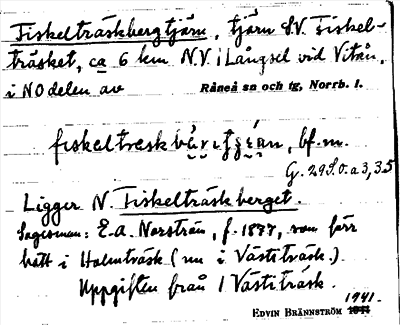 Fiskelträskbergtjärn, tjärn S.V. Fiskel-
träsket, ca 6 km N.V. i Långsel vid Vitån,
i NO delen av Råneå sn och tg, Norrb. l.
bf. m.
G. 29 S.O. a 3,35
Ligger N. Fiskelträskberget.
Sagesman: E.A. Norström, f. 1877, som förr
bott i Holmträsk (nu i Västiträsk.).
Uppgiften från 1 Västiträsk.
1941.
EDVIN BRÄNNSTRÖM